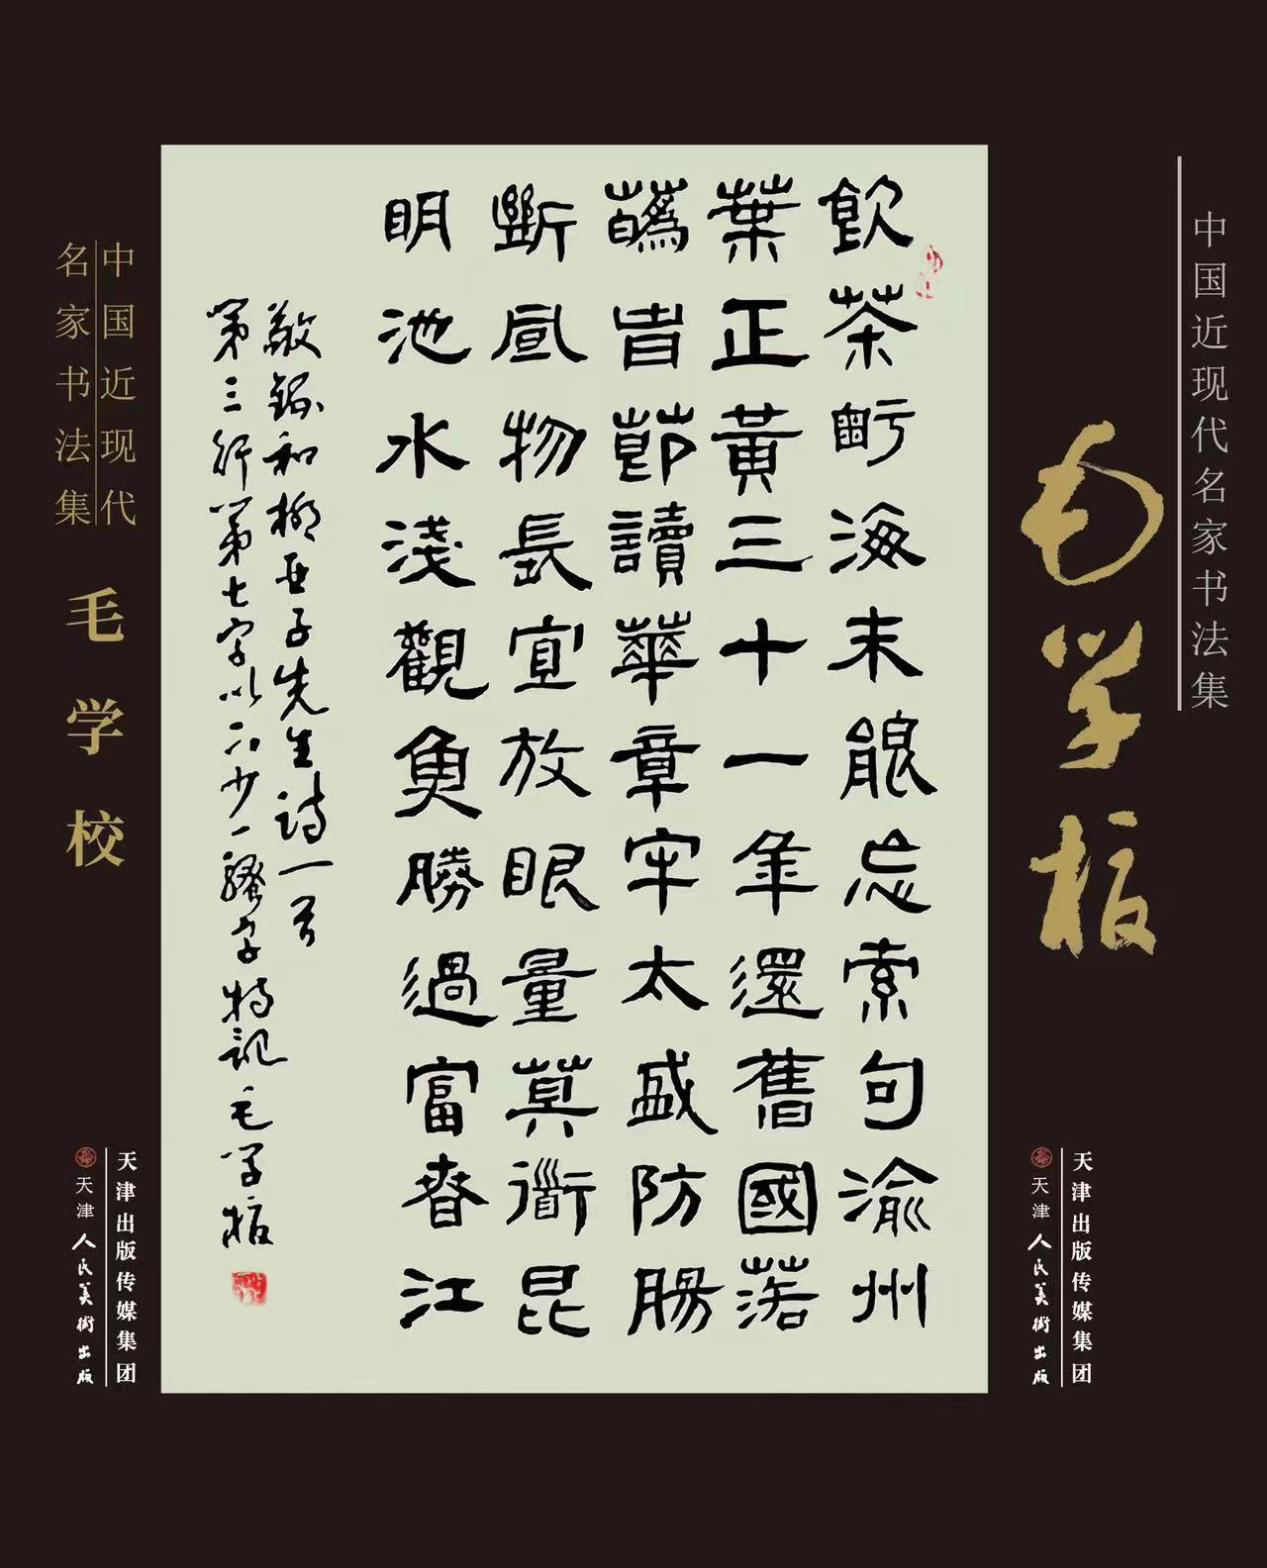 中国近现代名家书法集
毛学校
天津出版传媒集团
天津人民美術出版
飲茶粵海未能忘索句渝州
葉正黃三十一年還舊國落
蘤旹節讀華章牢太盛防腸
斷風物長宜放眼量莫衟昆
明池水淺觀魚勝過富春江
敬錄和柳亞子先生詩一首
第三行第七字以下少一騷字特記毛学校
中国近现代
名家书法集
毛学校
天津出版传媒集团
天津人民美術出版